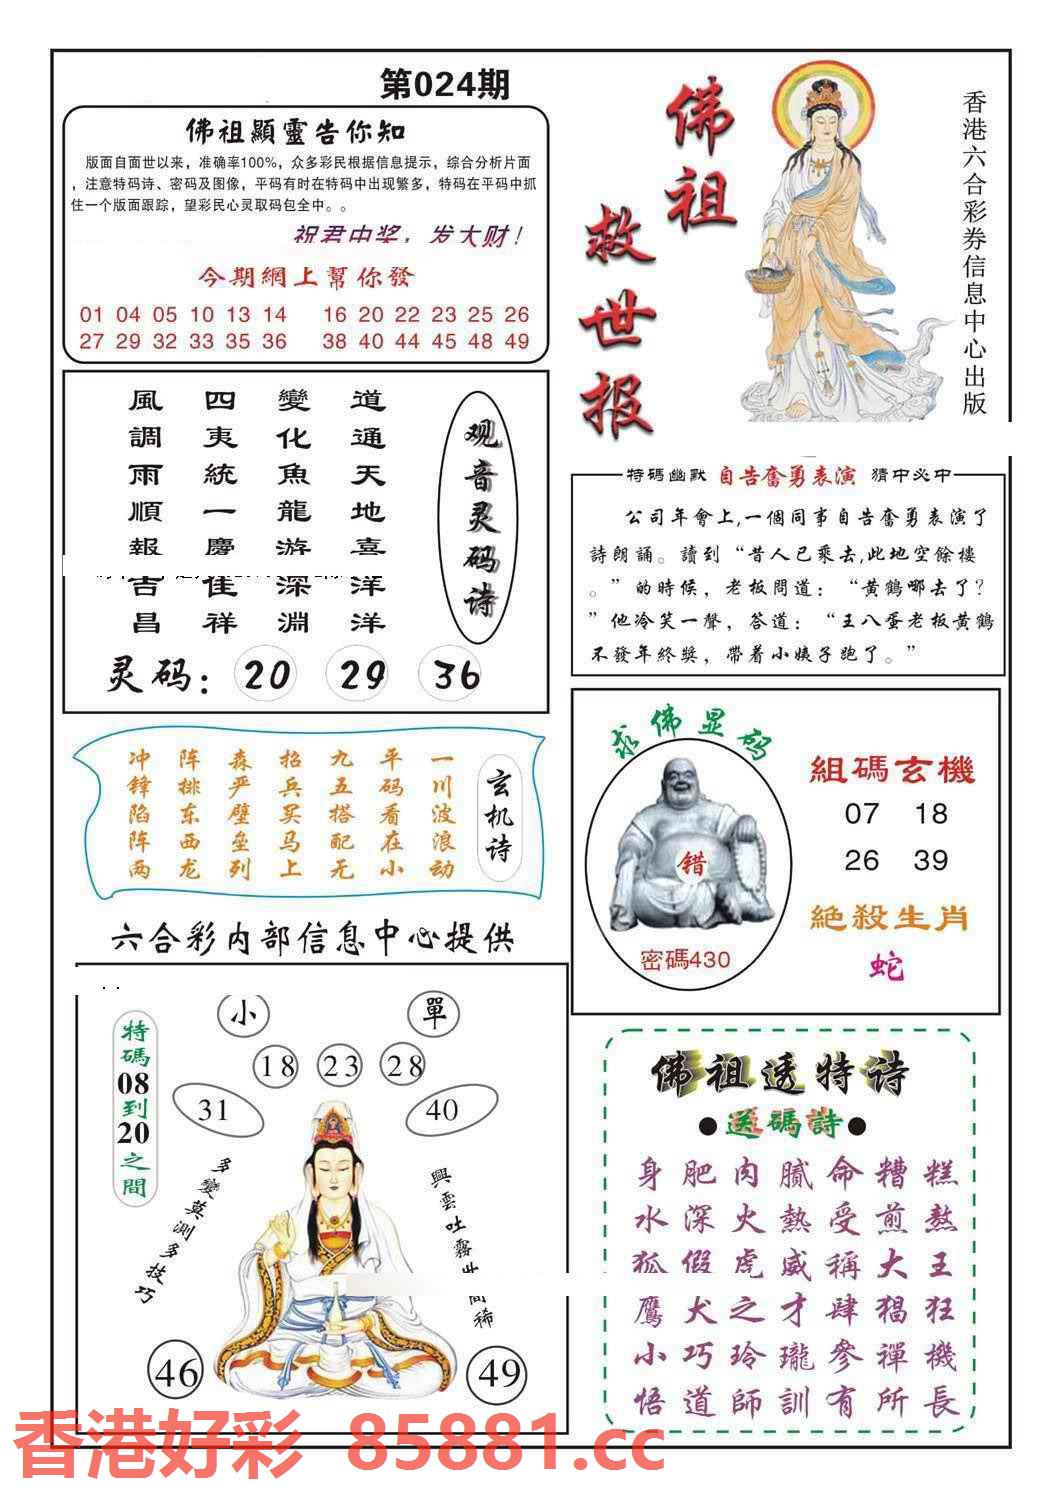 第024期
佛祖顯靈告你知
版面自面世以来，准确率100%，众多彩民根据信息提示，综合分析片面
，注意特码诗、密码及图像，平码有时在特码中出现繁多，特码在平码中抓
住一个版面跟踪，望彩民心灵取码包全中。。
祝君中奖，发大财！
今期網上幫你發
01 04 05 10 13 14 16 20 22 23 25 26
27 29 32 33 35 36 38 40 44 45 48 49
佛祖
救世报
香港六合彩券信息中心出版
观音灵码诗
道通天地喜洋洋
變化魚龍游深淵
四夷統一慶佳祥
風調雨順報吉昌
灵码：20 29 36
特碼幽默 自告奮勇表演 猜中必中
公司年會上,一個同事自告奮勇表演了
詩朗誦。讀到“昔人已乘去,此地空餘樓
。”的時候，老板問道：“黄鶴哪去了？
”他冷笑一聲，答道：“王八蛋老板黄鶴
不發年終獎，帶着小姨子跑了。”
玄机诗
一川波浪动
平码看在小
九五搭配无
招兵买马上
森严壁垒列
阵排东西龙
冲锋陷阵两
求佛显码
错
密碼430
組碼玄機
07 18
26 39
絕殺生肖
蛇
六合彩内部信息中心提供
特碼08到20之間
小 單
18 23 28
31 40
多變莫測多技巧
興雲吐霧
稀
46 49
佛祖透特诗
●送碼詩●
身肥肉膩命糟糕
水深火熱受煎熬
狐假虎威稱大王
鷹犬之才肆猖狂
小巧玲瓏參禪機
悟道師訓有所長
香港好彩 85881.cc